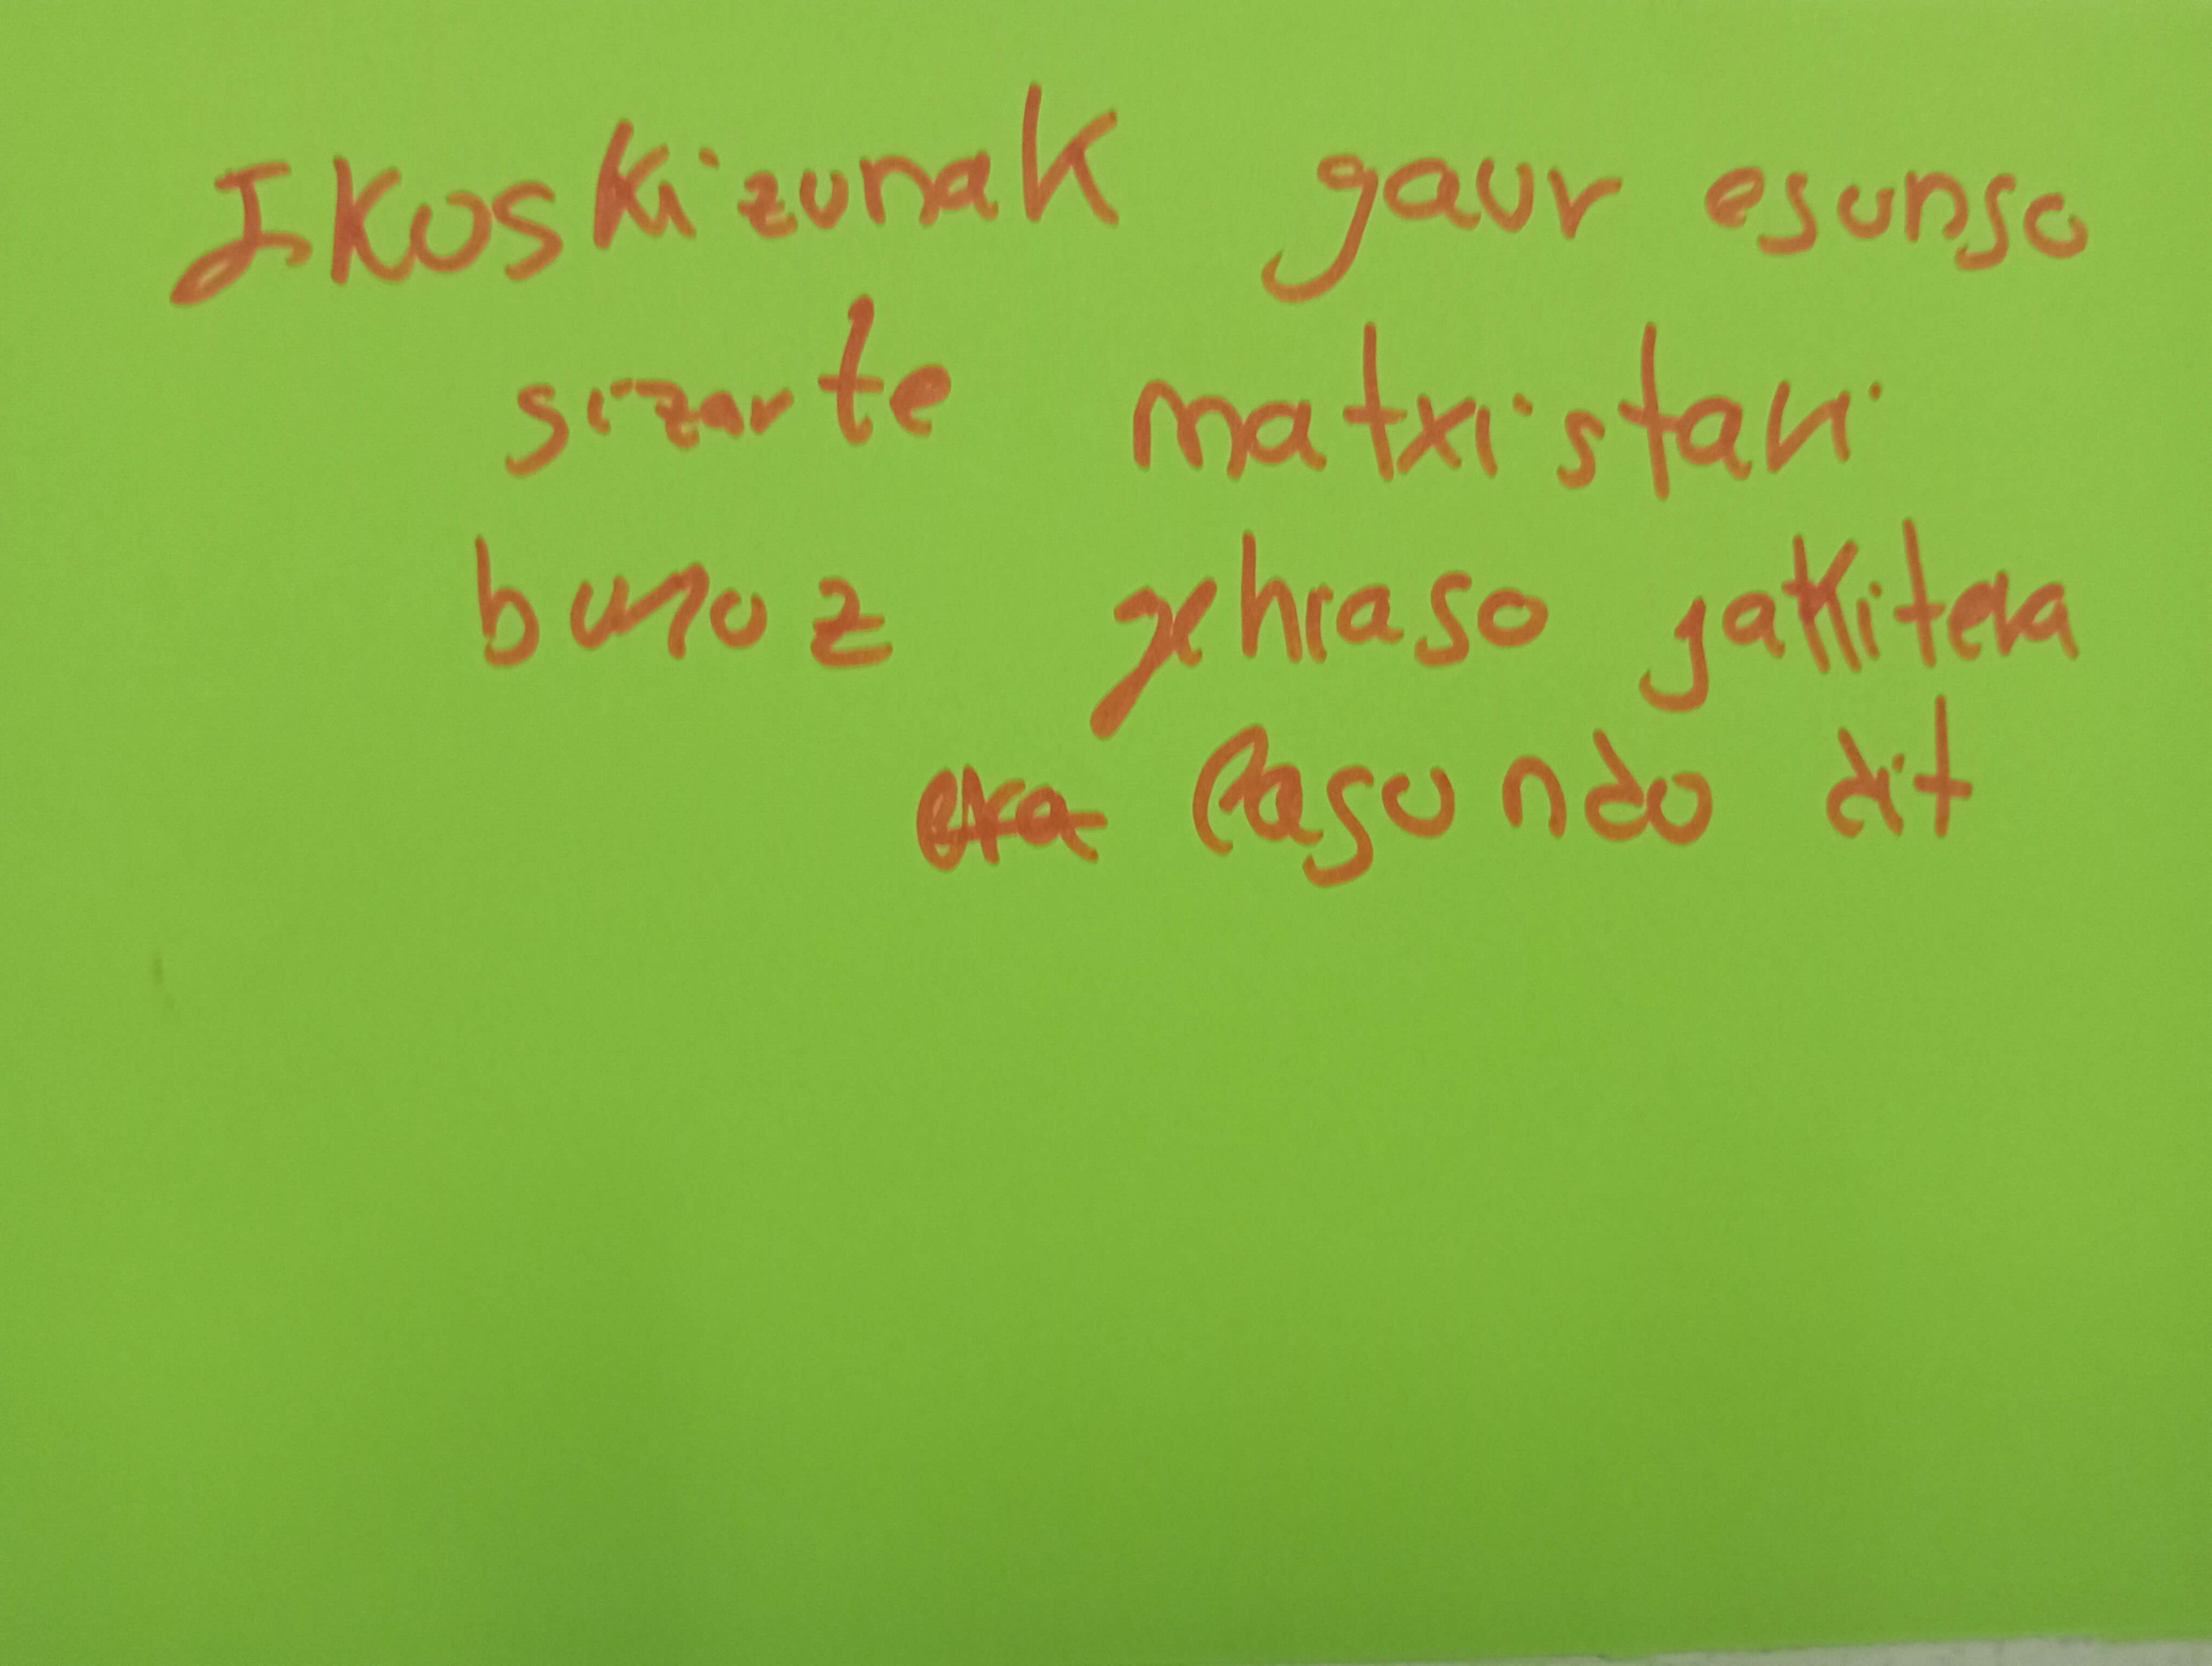 Ikuskizunak gaur esungo
sizarte matxistari
buruz gehiago jakitera
lagundo dit